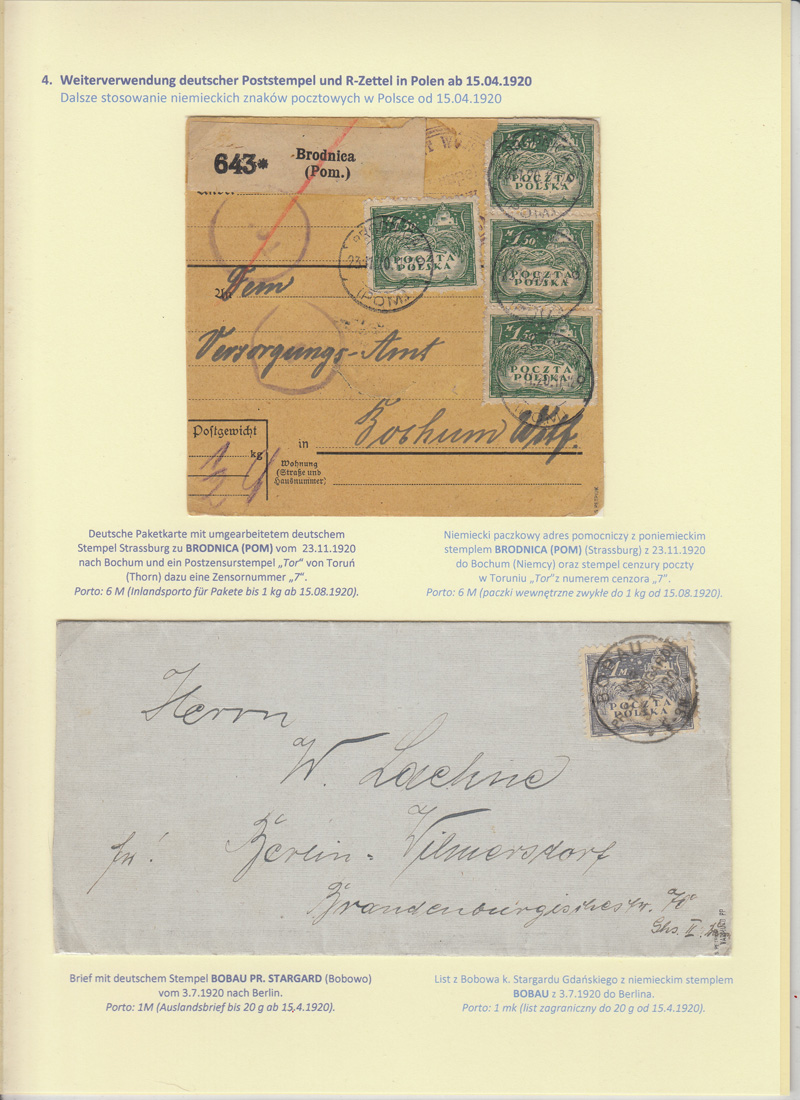 4. Weiterverwendung deutscher Poststempel und R-Zettel in Polen ab 15.04.1920
Dalsze stosowanie niemieckich znaków pocztowych w Polsce od 15.04.1920
643* Brodnica
(Pom.)
M 1,50
POCZTA
POLSKA
POCZTA
POLSKA
23.11.20.
(POM)
M 1,50
POCZTA
POLSKA
M 1,50
POCZTA
POLSKA
An Dem
Versorgungs-Amt
in Bochum Wstf.
Postgewicht
kg
Wohnung
(Straße und
Hausnummer)
Deutsche Paketkarte mit umgearbeitetem deutschem
Stempel Strassburg zu BRODNICA (POM) vom 23.11.1920
nach Bochum und ein Postzensurstempel „Tor“ von Toruń
(Thorn) dazu eine Zensornummer „7“.
Porto: 6 M (Inlandsporto für Pakete bis 1 kg ab 15.08.1920).
Niemiecki paczkowy adres pomocniczy z poniemieckim
stemplem BRODNICA (POM) (Strassburg) z 23.11.1920
do Bochum (Niemcy) oraz stempel cenzury poczty
w Toruniu „Tor”z numerem cenzora „7”.
Porto: 6 M (paczki wewnętrzne zwykłe do 1 kg od 15.08.1920).
BOBAU
1 M
POCZTA
POLSKA
Herrn
W. Lachne
Berlin-Wilmersdorf
Brandenburgischestr.
Ghs. II
Brief mit deutschem Stempel BOBAU PR. STARGARD (Bobowo)
vom 3.7.1920 nach Berlin.
Porto: 1M (Auslandsbrief bis 20 g ab 15,4.1920).
List z Bobowa k. Stargardu Gdańskiego z niemieckim stemplem
BOBAU z 3.7.1920 do Berlina.
Porto: 1 mk (list zagraniczny do 20 g od 15.4.1920).